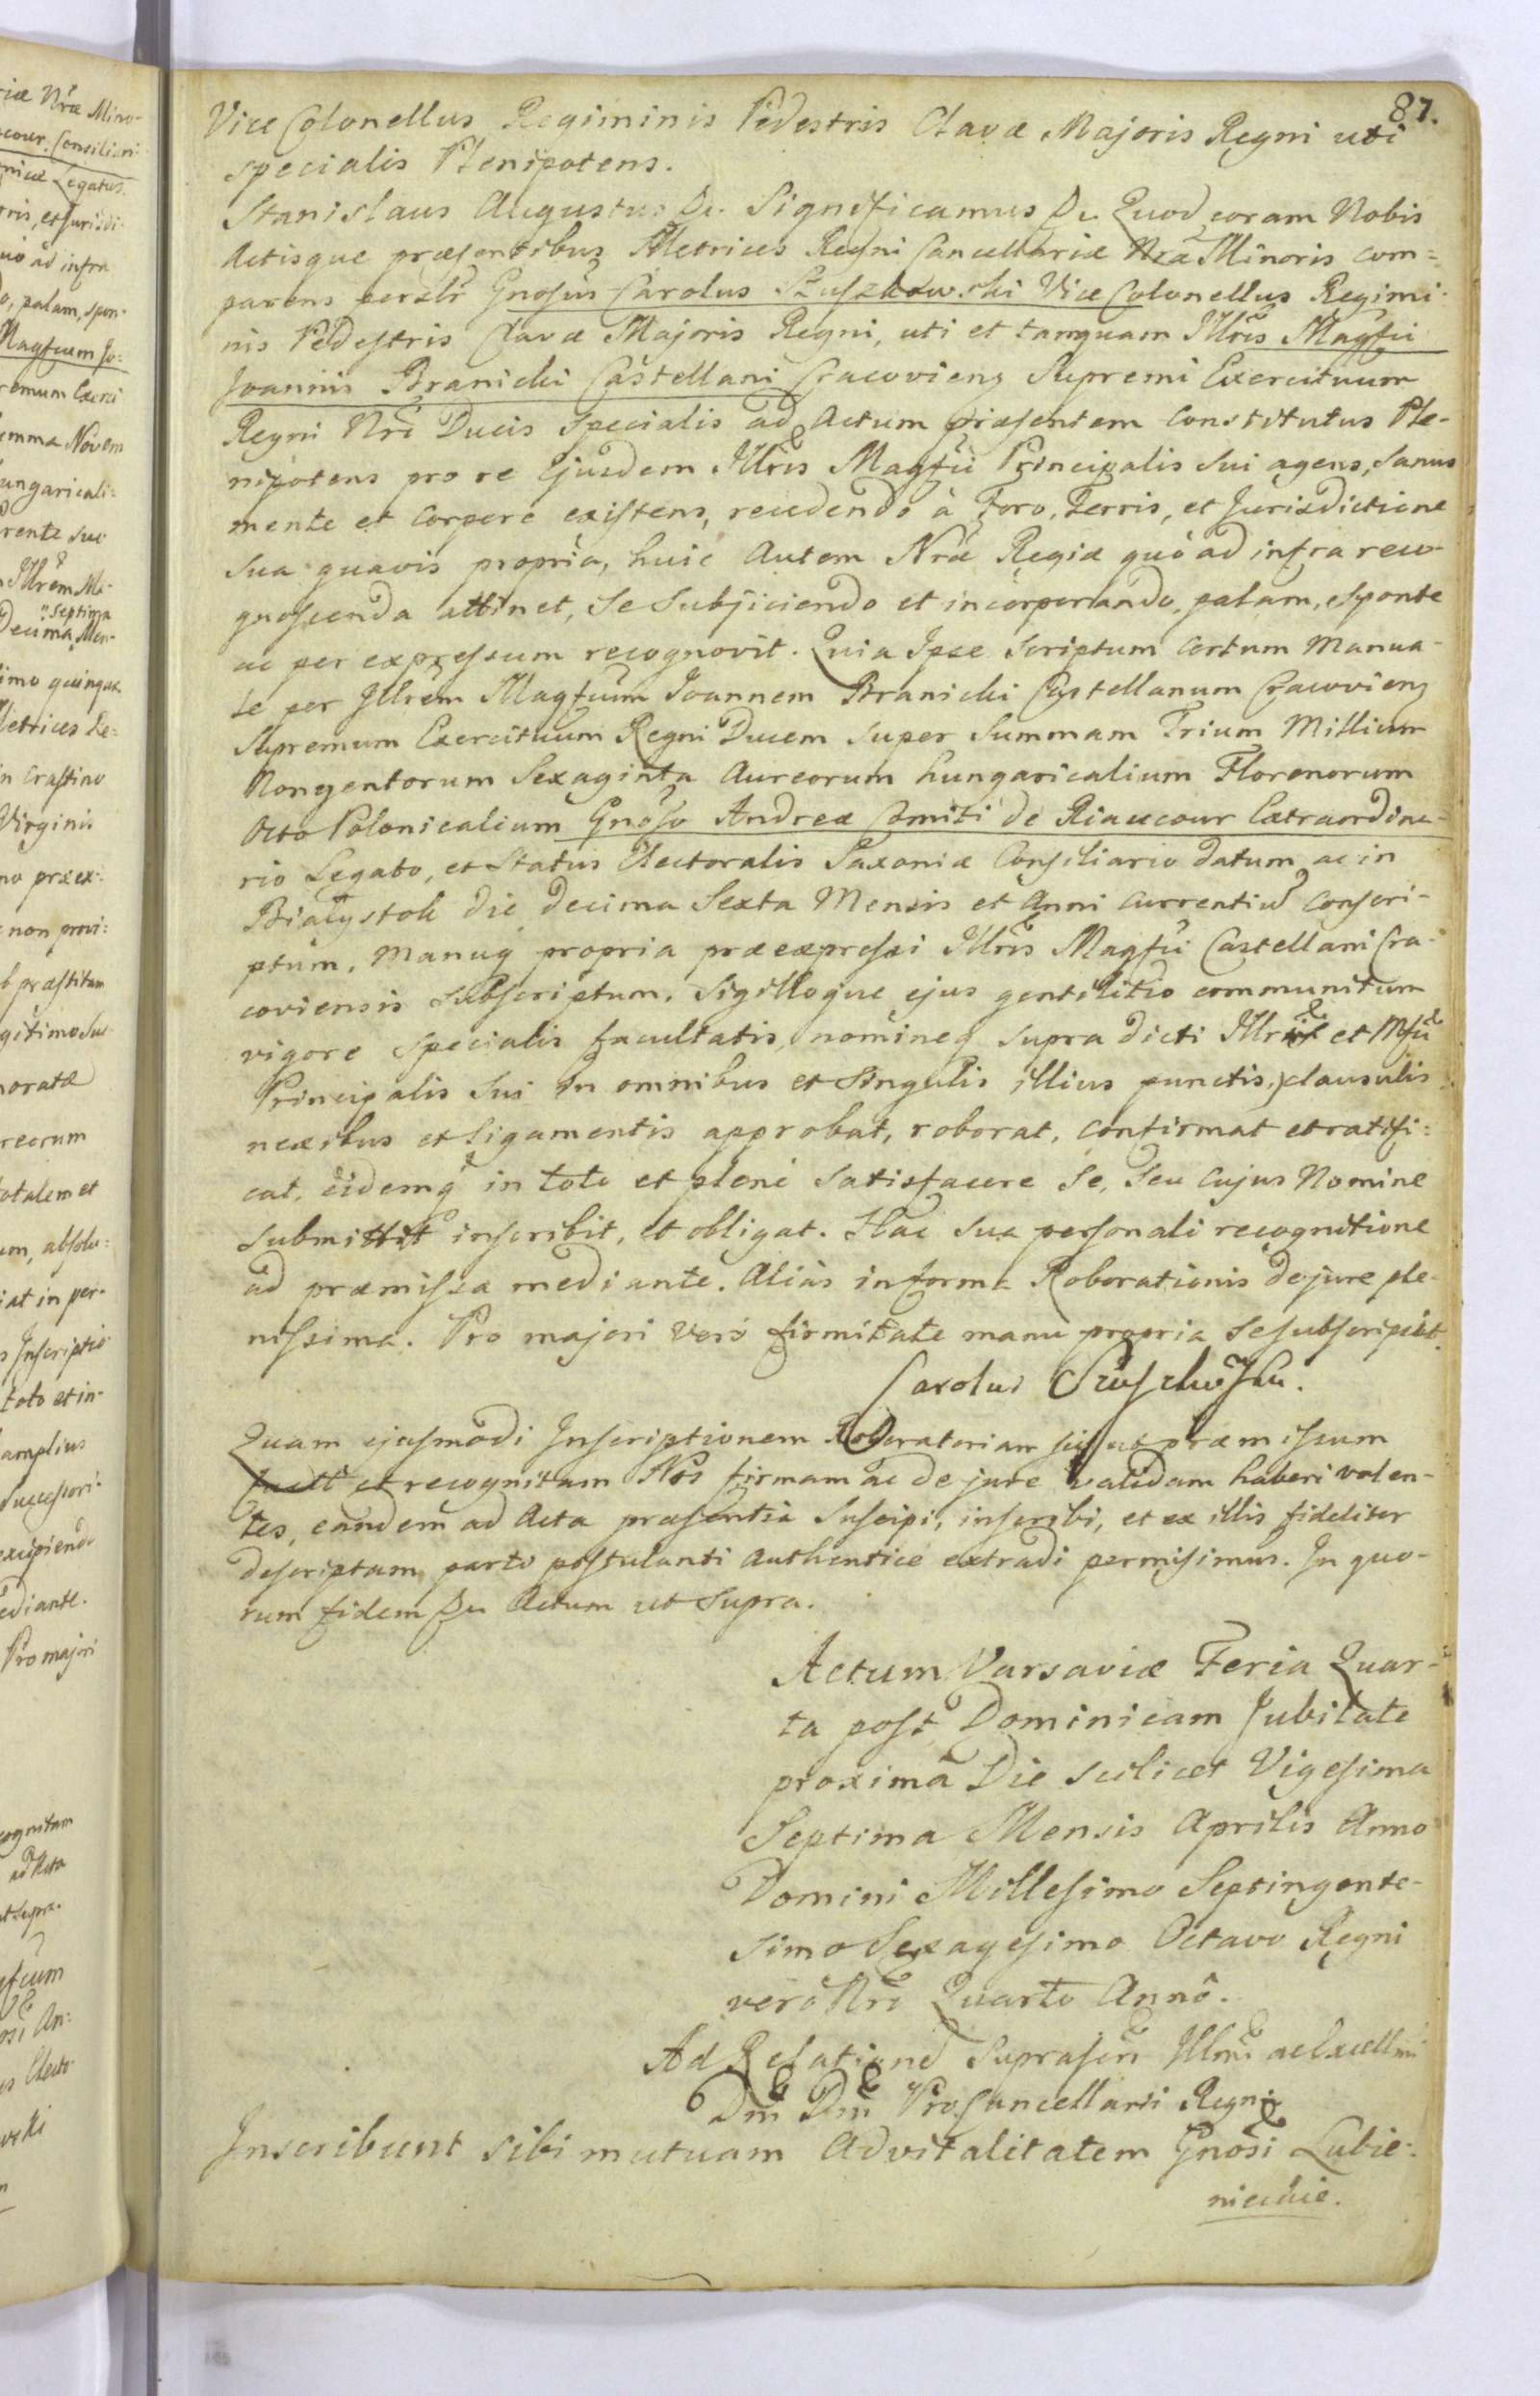 87.
Vice Colonellus Regiminis Pedestris Clavæ Majoris Regni uti
specialis Plenipotens.
Stanislaus Augustus &c. Significamus &c. Quod coram Nobis
Actisque præsentibus Metrices Regni Cancellariæ Nræ Minoris com=
parens Gnosus Carolus Szuszkowski Vice Colonellus Regimi-
nis Pedestris Clavæ Majoris Regni, uti et tanquam Illris Magfci
Joannis Branicki Castellani Cracoviens Supremi Exercituum
Regni Nri Ducis specialis ad Actum præsentem Constitutus Ple-
nipotens pro re Ejusdem Illris Magfci Principalis sui agens, sanus
mente et corpore existens, recedendo à Foro, Terris, et Jurisdictione
sua quavis propria, huic Autem Nræ Regiæ quò ad infra reco-
gnoscenda attinet, se subjiciendo et incorporando, palam, sponte
ac per expressum recognovit. Quia Ipse Scriptum certum Manua-
le per Illrem Magfcum Joannem Branicki Castellanum Cracoviens
Supremum Exercituum Regni Ducem super Summam Trium Millium
Nongentorum Sexaginta Aureorum hungaricalium Florenorum
Octo Polonicalium Gnoso Andreæ Comiti de Riaucour Extraordina-
rio Legato, et Status Electoralis Saxoniæ Consiliario datum, ac in
Białystok die decima Sexta Mensis et Anni Currentium Conscri-
ptum, manuq propria præexpressi Illris Magfci Castellani Cra-
coviensis subscriptum, Sigilloque ejus gentilitio communitum
vigore specialis facultatis, nomineq supra dicti Illris et Mfci
Principalis sui in omnibus et singulis illius punctis, clausulis
nexibus et ligamentis approbat, roborat, confirmat et ratifi=
cat, eidemq in toto et plene satisfacere se, seu cujus Nomine
submittit inscribit, et obligat. Hac sua personali recognitione
ad præmissa mediante. Aliàs in forma Roborationis de jure ple-
nissima. Pro majori verò firmitate manu propria se subscripsit.
Carolus Szuszkowski.
Quam ejusmodi Inscriptionem Roboratoriam sic ut præmissum
et recognitam Nos firmam ac de jure validam haberi volen-
tes, eandem ad Acta præsentia suscipi, inscribi, et ex illis fideliter
descriptam parti postulanti Authentice extradi permisimus. In quo-
rum fidem &c Actum ut supra.
Actum Varsaviæ Feria Quar-
ta post Dominicam Jubilate
proxima Die scilicet Vigesima
Septima Mensis Aprilis Anno
Domini Millesimo Septingente-
simo Sexagesimo Octavo Regni
verò Nri Quarto Annô.
Ad Relationem Suprascri Illmi ac Excellmi
Dni Dni ProCancellarii Regni
Inscribunt sibi mutuam Advitalitatem Gnosi Lubie-
nieckie.